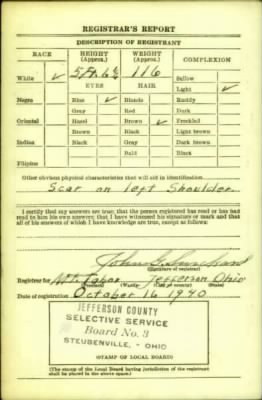 REGISTRAR'S REPORT
DESCRIPTION OF REGISTRANT
RACE HEIGHT (Approx.) WEIGHT (Approx.) COMPLEXION
White ✓ 5 ft. 6½ 116 Sallow
EYES HAIR Light ✓
Negro Blue ✓ Blonde Ruddy
Gray Red Dark
Oriental Hazel Brown ✓ Freckled
Brown Black Light brown
Indian Black Gray Dark brown
Bald Black
Filipino
Other obvious physical characteristics that will aid in identification
Scar on left Shoulder.
I certify that my answers are true; that the person registered has read or has had
read to him his own answers; that I have witnessed his signature or mark and that
all of his answers of which I have knowledge are true, except as follows:
John
(Signature of registrar)
Registrar for Mt. Tabor Jefferson Ohio
(Precinct) (Ward) (City or county) (State)
Date of registration October 16 1940
JEFFERSON COUNTY
SELECTIVE SERVICE
Board No. 3
STEUBENVILLE - OHIO
(STAMP OF LOCAL BOARD)
(The stamp of the Local Board having jurisdiction of the registrant
shall be placed in the above space.)